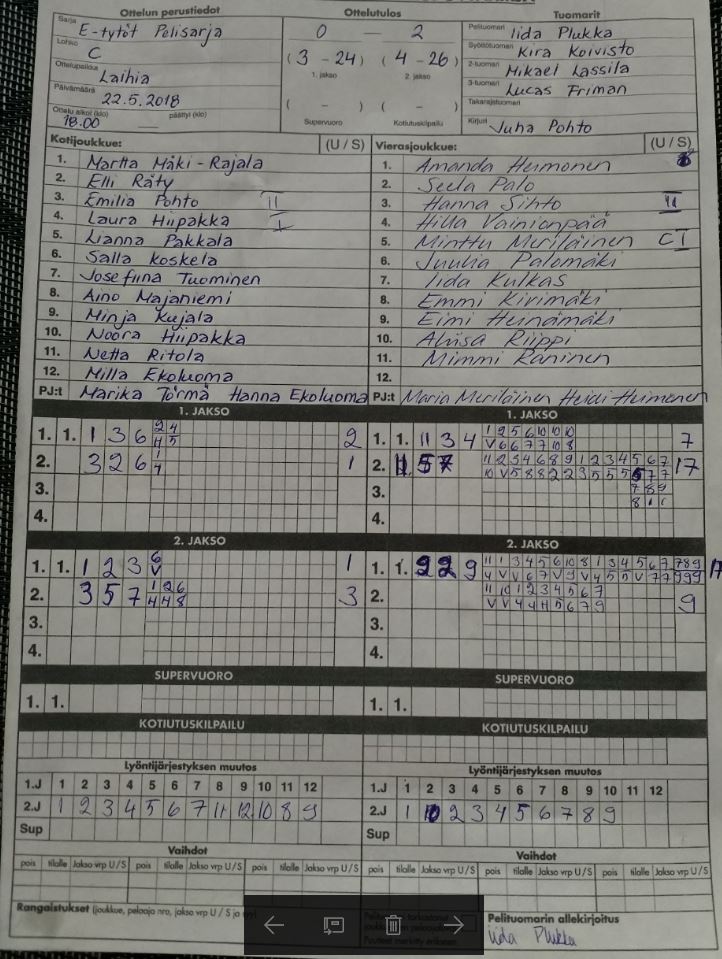 Ottelun perustiedot
Sarja E-tytöt Pelisarja
Lohko C
Ottelupaikka Laihia
Päivämäärä 22.5.2018
Ottelu alkoi (klo) 18.00 päättyi (klo)
Ottelutulos
0 — 2
(3 - 24) (4 - 26)
1. jakso 2. jakso
( - ) ( - )
Supervuoro Kotiutuskilpailu
Tuomarit
Pelituomari Iida Plukka
Syöttötuomari Kira Koivisto
2-tuomari Mikael Lassila
3-tuomari Lucas Friman
Takarajatuomari
Kirjuri Juha Pohto
Kotijoukkue: (U / S)
1. Martta Mäki-Rajala
2. Elli Räty
3. Emilia Pohto II
4. Laura Hiipakka I
5. Lianna Pakkala
6. Salla Koskela
7. Josefiina Tuominen
8. Aino Majaniemi
9. Minja Kujala
10. Noora Hiipakka
11. Netta Ritola
12. Milla Ekoluoma
PJ:t Marika Törmä Hanna Ekoluoma
Vierasjoukkue: (U / S)
1. Amanda Heimonen
2. Seela Palo
3. Hanna Sihto II
4. Hilla Vainionpää
5. Minttu Meriläinen C I
6. Juulia Palomäki
7. Iida Kulkas
8. Emmi Kirimäki
9. Eimi Heinämäki
10. Aliisa Riippi
11. Mimmi Räninen
12.
PJ:t Maria Meriläinen Heidi Heimonen
1. JAKSO
1. 1. 1 3 6 2 4 2
4 5
2. 3 2 6 1 1
4
3.
4.
1. JAKSO
1. 1. 11 3 4 1 2 5 6 10 10 10 7
V 6 6 7 7 10 8
2. 5 7 11 2 3 4 6 8 9 1 2 3 4 5 6 7 17
10 V 5 8 8 2 2 3 5 5 5 6 7 7
3. 7 8 9
4.
2. JAKSO
1. 1. 1 2 3 6 1
V
2. 3 5 7 1 2 6 3
4 4 8
3.
4.
2. JAKSO
1. 1. 2 2 9 11 1 3 4 5 6 10 8 1 3 4 5 6 7 7 8 9 17
4 V V 6 7 V 9 V 4 5 5 V 7 7 9 9 9
2. 11 10 1 2 3 4 5 6 7 9
V V 4 4 4 5 6 7 9
3.
4.
SUPERVUORO
1. 1.
SUPERVUORO
1. 1.
KOTIUTUSKILPAILU
KOTIUTUSKILPAILU
Lyöntijärjestyksen muutos
1.J 1 2 3 4 5 6 7 8 9 10 11 12
2.J 1 2 3 4 5 6 7 11 12 10 8 9
Sup
Lyöntijärjestyksen muutos
1.J 1 2 3 4 5 6 7 8 9 10 11 12
2.J 1 10 2 3 4 5 6 7 8 9
Sup
Vaihdot
pois tilalle Jakso vrp U/S pois tilalle Jakso vrp U/S pois tilalle Jakso vrp U/S
Vaihdot
pois tilalle Jakso vrp U/S pois tilalle Jakso vrp U/S pois tilalle Jakso vrp U/S
Rangaistukset (joukkue, pelaaja nro, jakso vrp U / S ja
Pelituomarin allekirjoitus
Iida Plukka